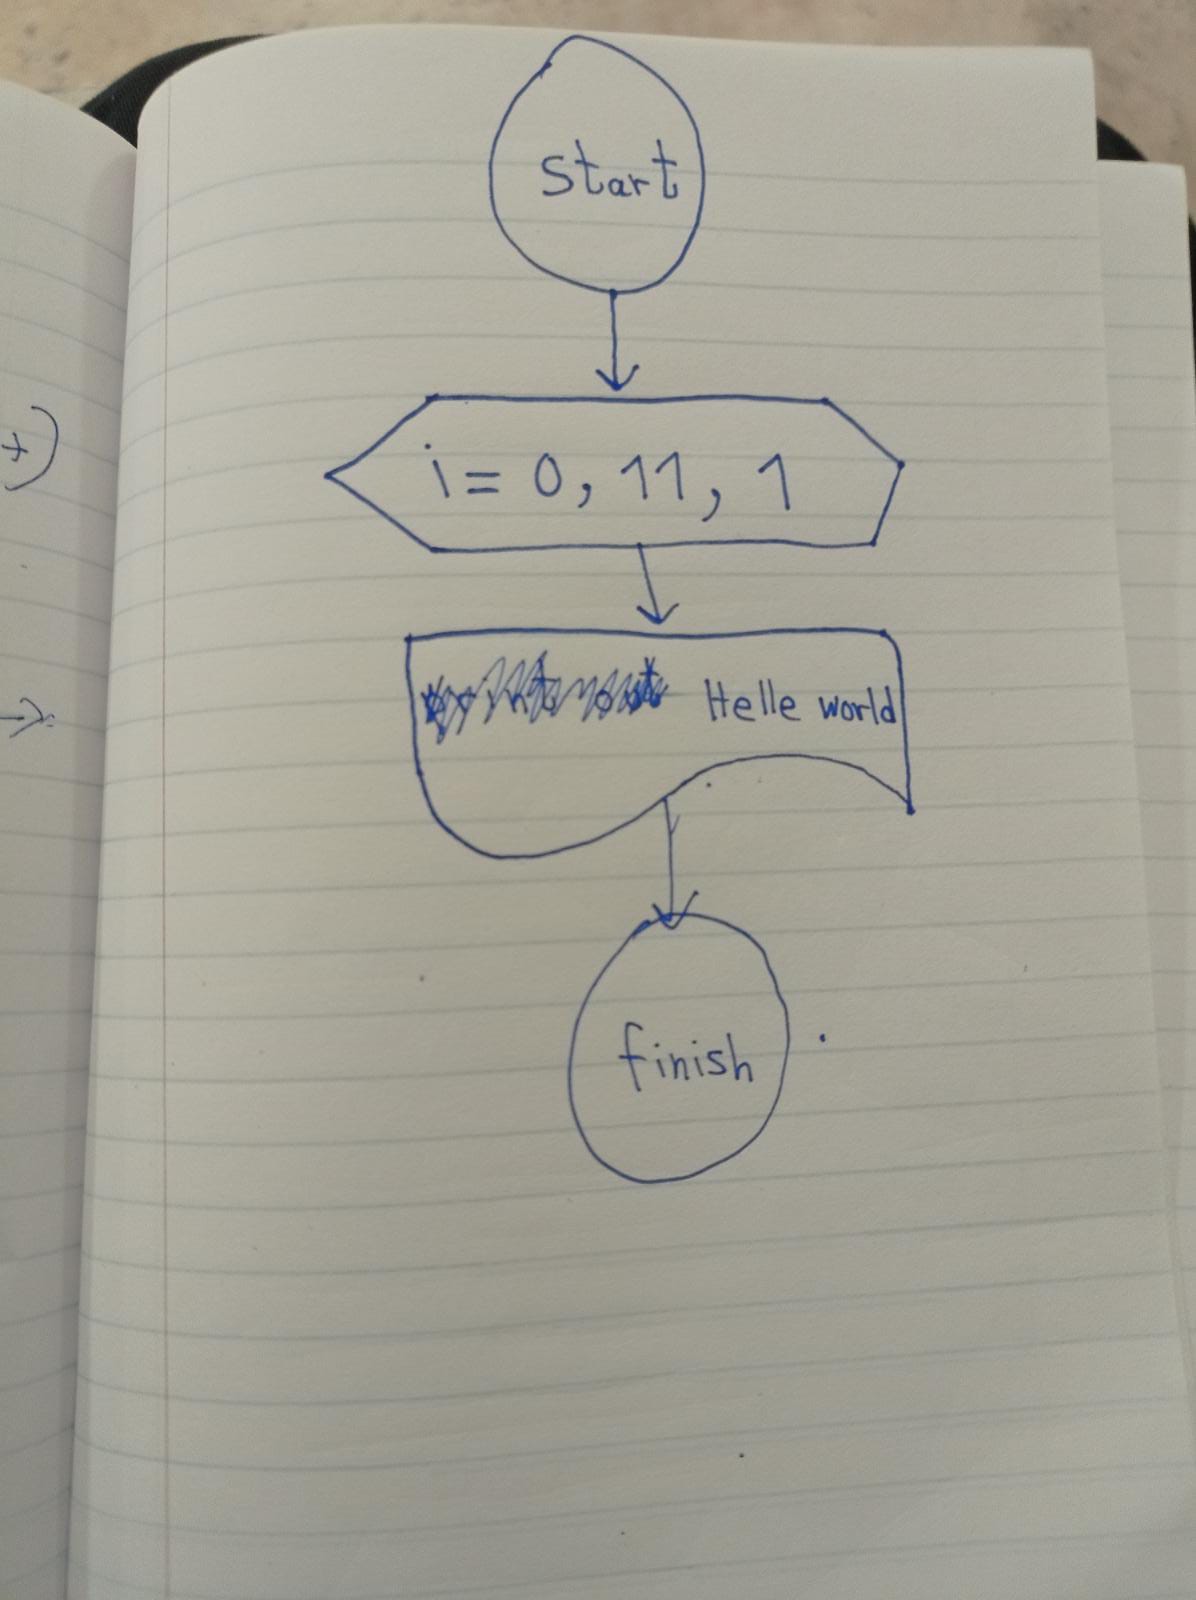 start
i = 0, 11, 1
Helle world
finish